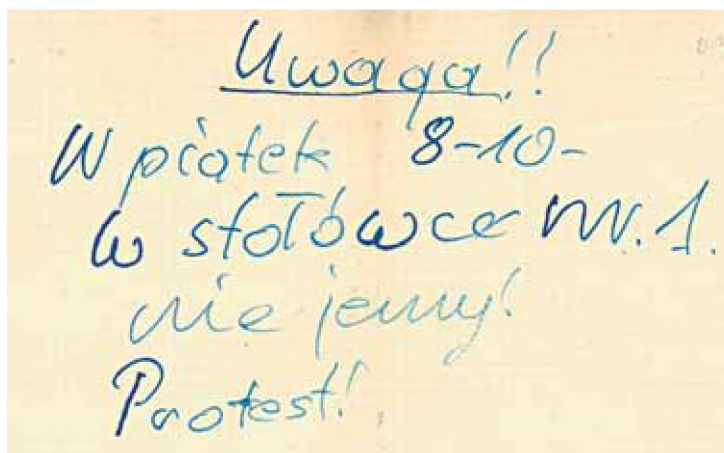 Uwaga!!
W piątek 8-10-
w stołówce nr. 1.
nie jemy!
Protest!